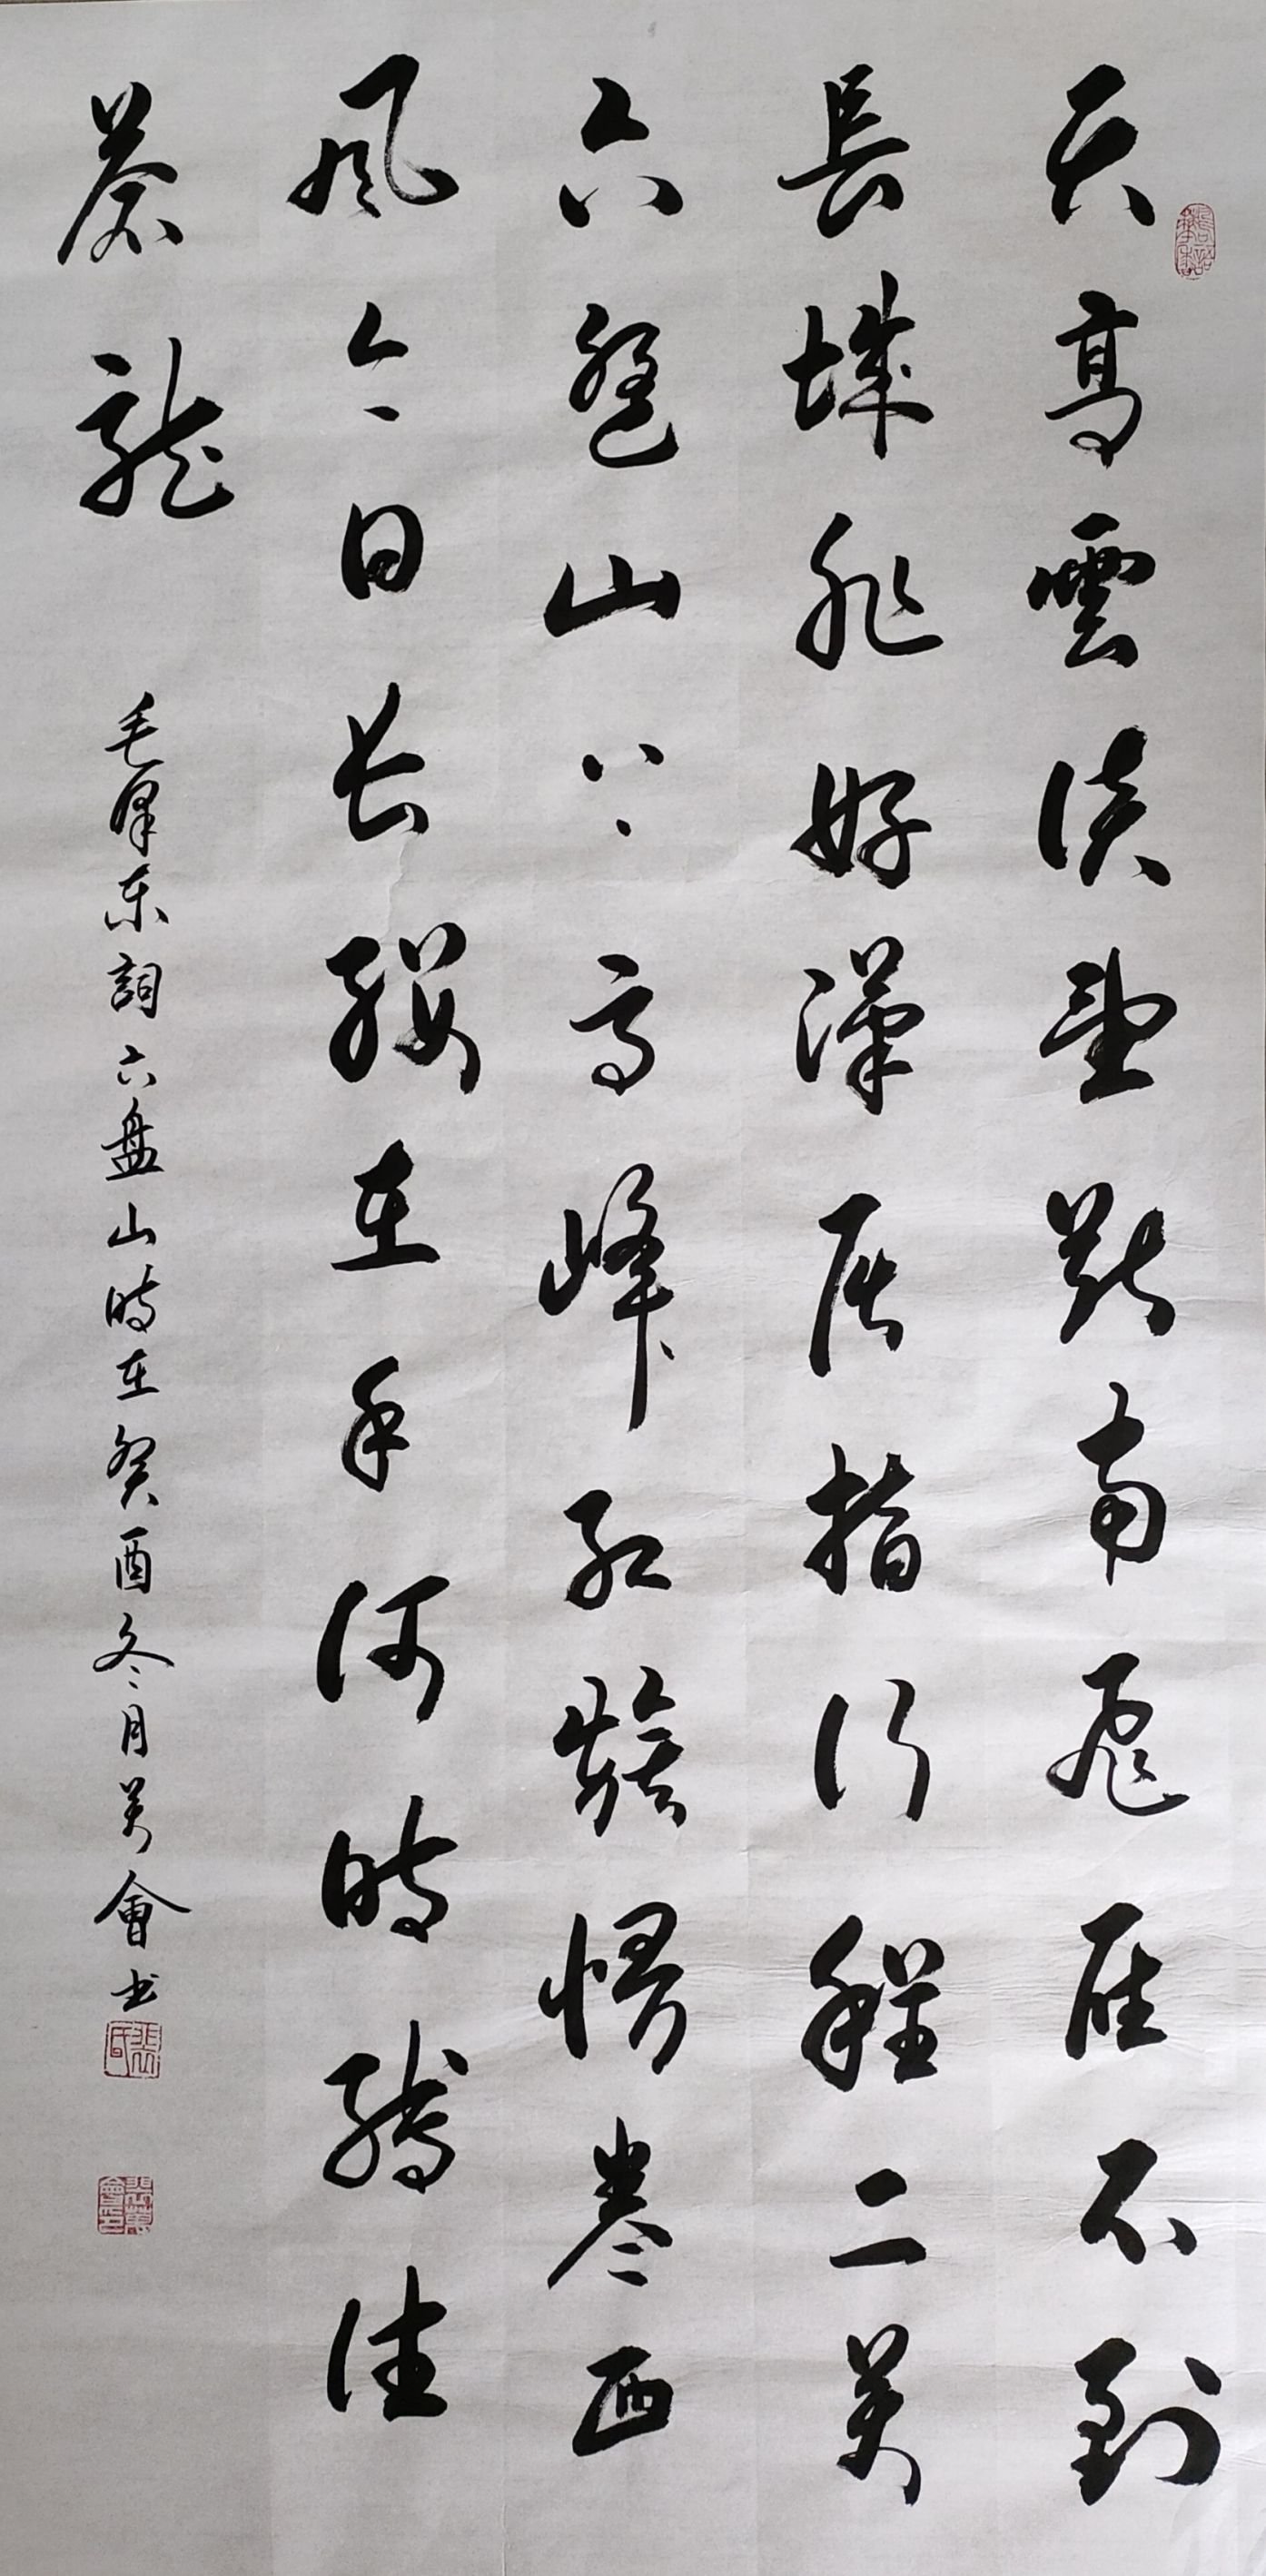 天高雲淡望斷南飛雁不到
長城非好漢屈指行程二萬
六盤山上高峰紅旗慢卷西
風今日长纓在手何時縛住
蒼龍
毛澤东詞六盘山時在癸酉冬月萬會书
裴萬會印